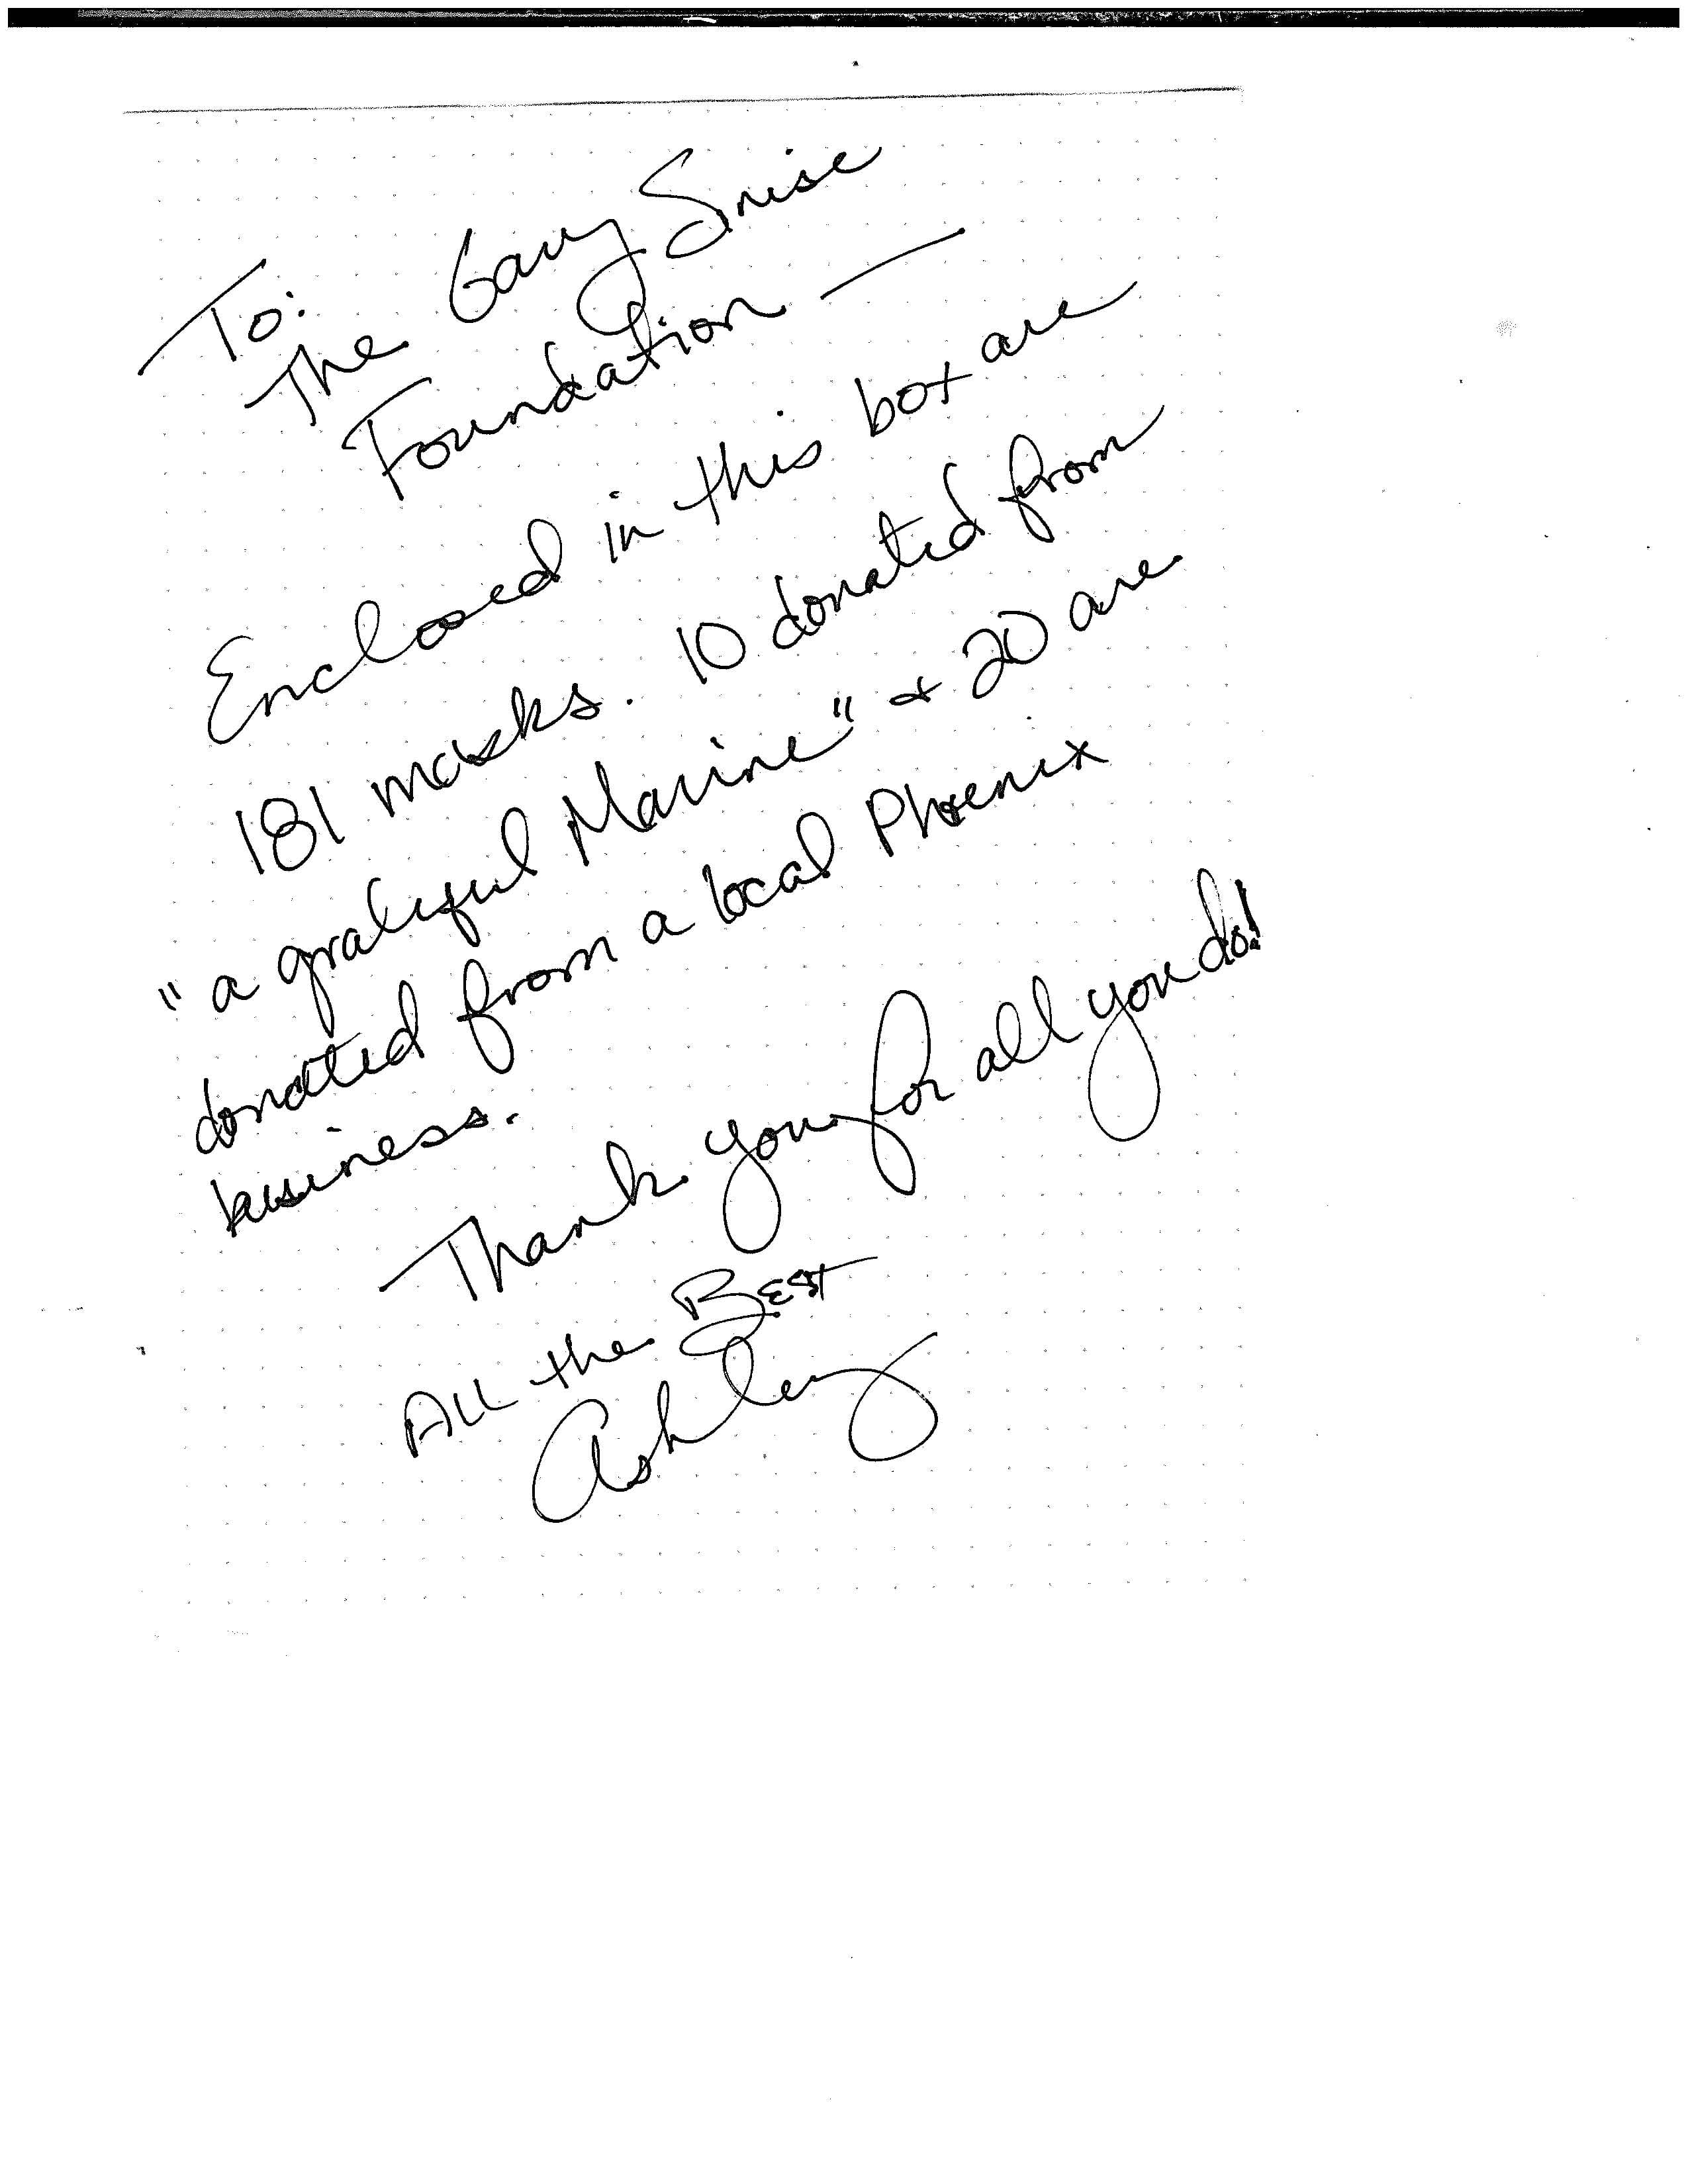 To:
The Gary Snise
Foundation —
Enclosed in this box are
181 masks. 10 donated from
"a grateful Marine" & 20 are
donated from a local Phoenix
business.
Thank you for all you do!
All the Best
Ashley